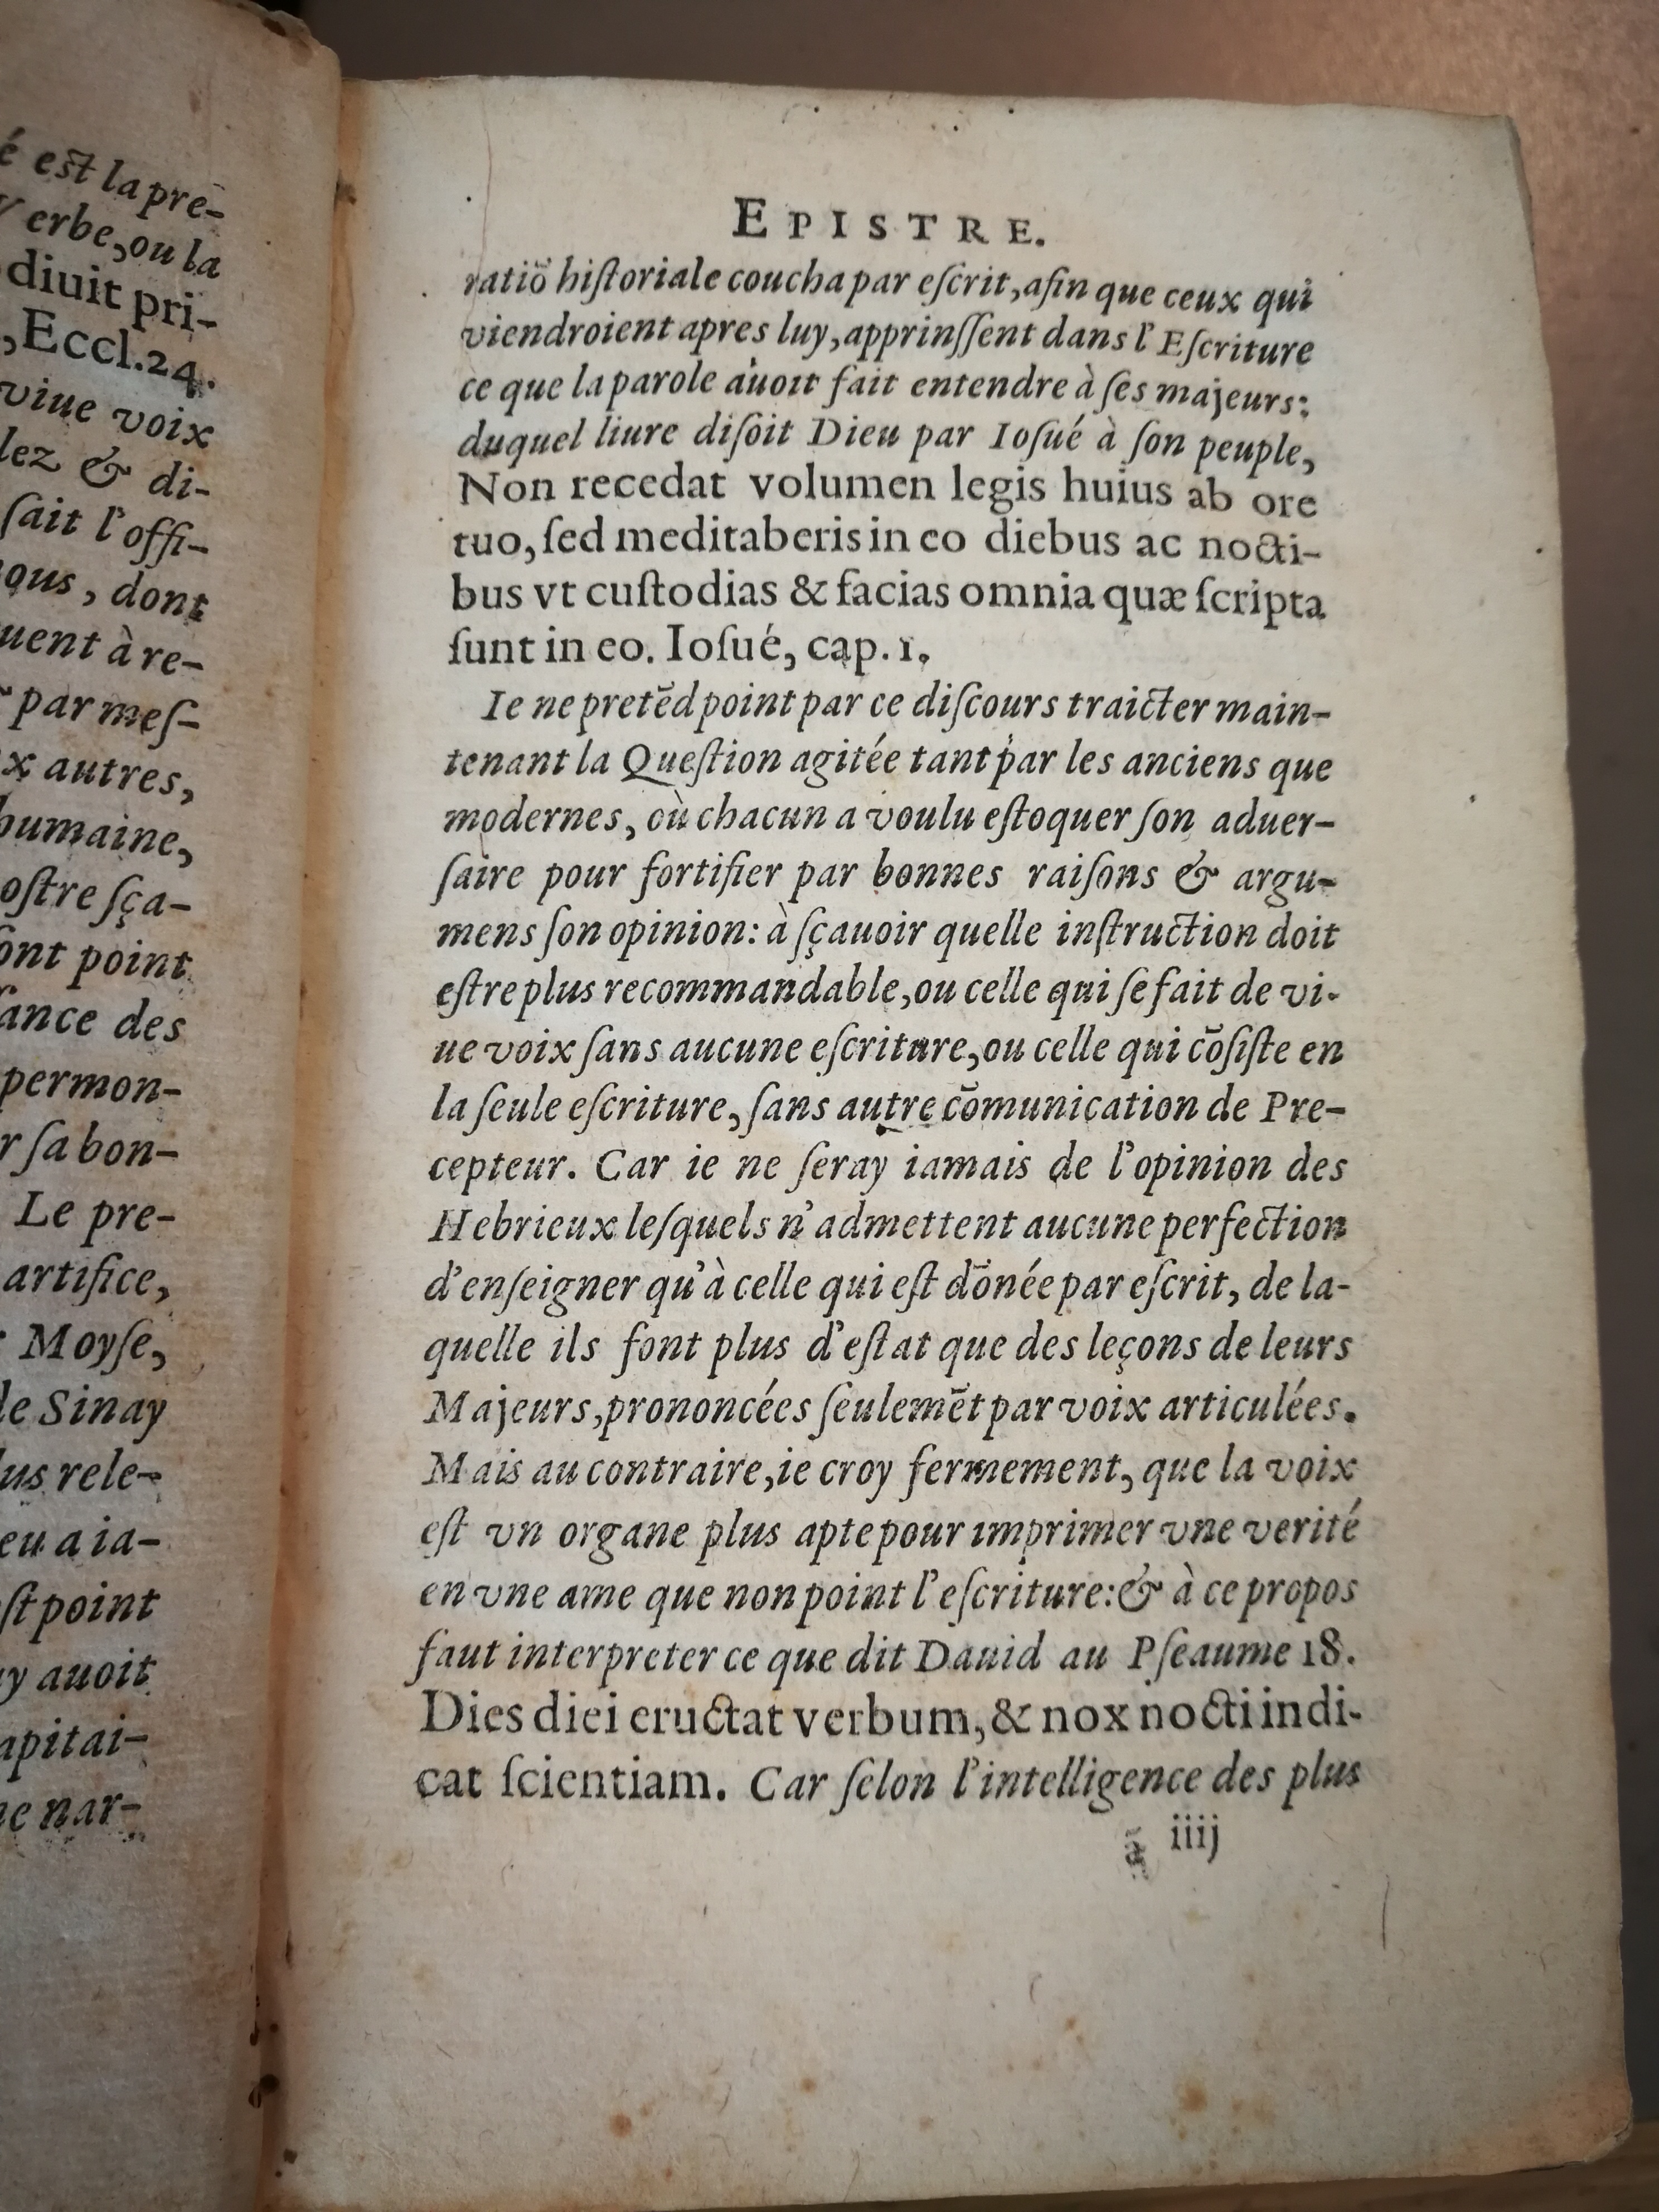 é est la pre-
Verbe, ou la
diuit pri-
, Eccl. 24.
viue voix
lez & di-
ſait l'offi-
ous, dont
uent à re-
par meſ-
x autres,
humaine,
oſtre ſça-
ont point
ance des
permon-
r ſa bon-
Le pre-
artifice,
Moyſe,
de Sinay
lus rele-
eu a ia-
ſt point
y auoit
apitai-
ne nar-
EPISTRE.
ratiõ hiſtoriale coucha par eſcrit, afin que ceux qui
viendroient apres luy, apprinſſent dans l'Eſcriture
ce que la parole auoit fait entendre à ſes majeurs:
duquel liure diſoit Dieu par Ioſué à ſon peuple,
Non recedat volumen legis huius ab ore
tuo, ſed meditaberis in eo diebus ac nocti-
bus vt cuſtodias & facias omnia quæ ſcripta
ſunt in eo. Ioſué, cap. 1.
Ie ne pretẽd point par ce diſcours traicter main-
tenant la Queſtion agitée tant par les anciens que
modernes, où chacun a voulu eſtoquer ſon aduer-
ſaire pour fortifier par bonnes raiſons & argu-
mens ſon opinion: à ſçauoir quelle inſtruction doit
eſtre plus recommandable, ou celle qui ſe fait de vi-
ue voix ſans aucune eſcriture, ou celle qui cõſiſte en
la ſeule eſcriture, ſans autre cõmunication de Pre-
cepteur. Car ie ne ſeray iamais de l'opinion des
Hebrieux leſquels n'admettent aucune perfection
d'enſeigner qu'à celle qui eſt dõnée par eſcrit, de la-
quelle ils font plus d'eſtat que des leçons de leurs
Majeurs, prononcées ſeulemẽt par voix articulées.
Mais au contraire, ie croy fermement, que la voix
eſt vn organe plus apte pour imprimer vne verité
en vne ame que non point l'eſcriture: & à ce propos
faut interpreter ce que dit Dauid au Pſeaume 18.
Dies diei eructat verbum, & nox nocti indi-
cat ſcientiam. Car ſelon l'intelligence des plus
ã iiij